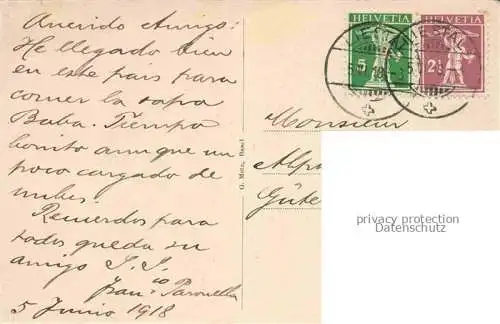 Querido Amigo:
He llegado bien
en este pais para
comer la sopa
Baba. Tiempo
bonito aunque un
poco cargado de
nubes.
Recuerdos para
todos queda su
amigo S. S.
Franco
5 Junio 1918
G. Metz, Basel
HELVETIA
5
HELVETIA
2½
Monsieur
Alph
Güte
privacy protection
Datenschutz